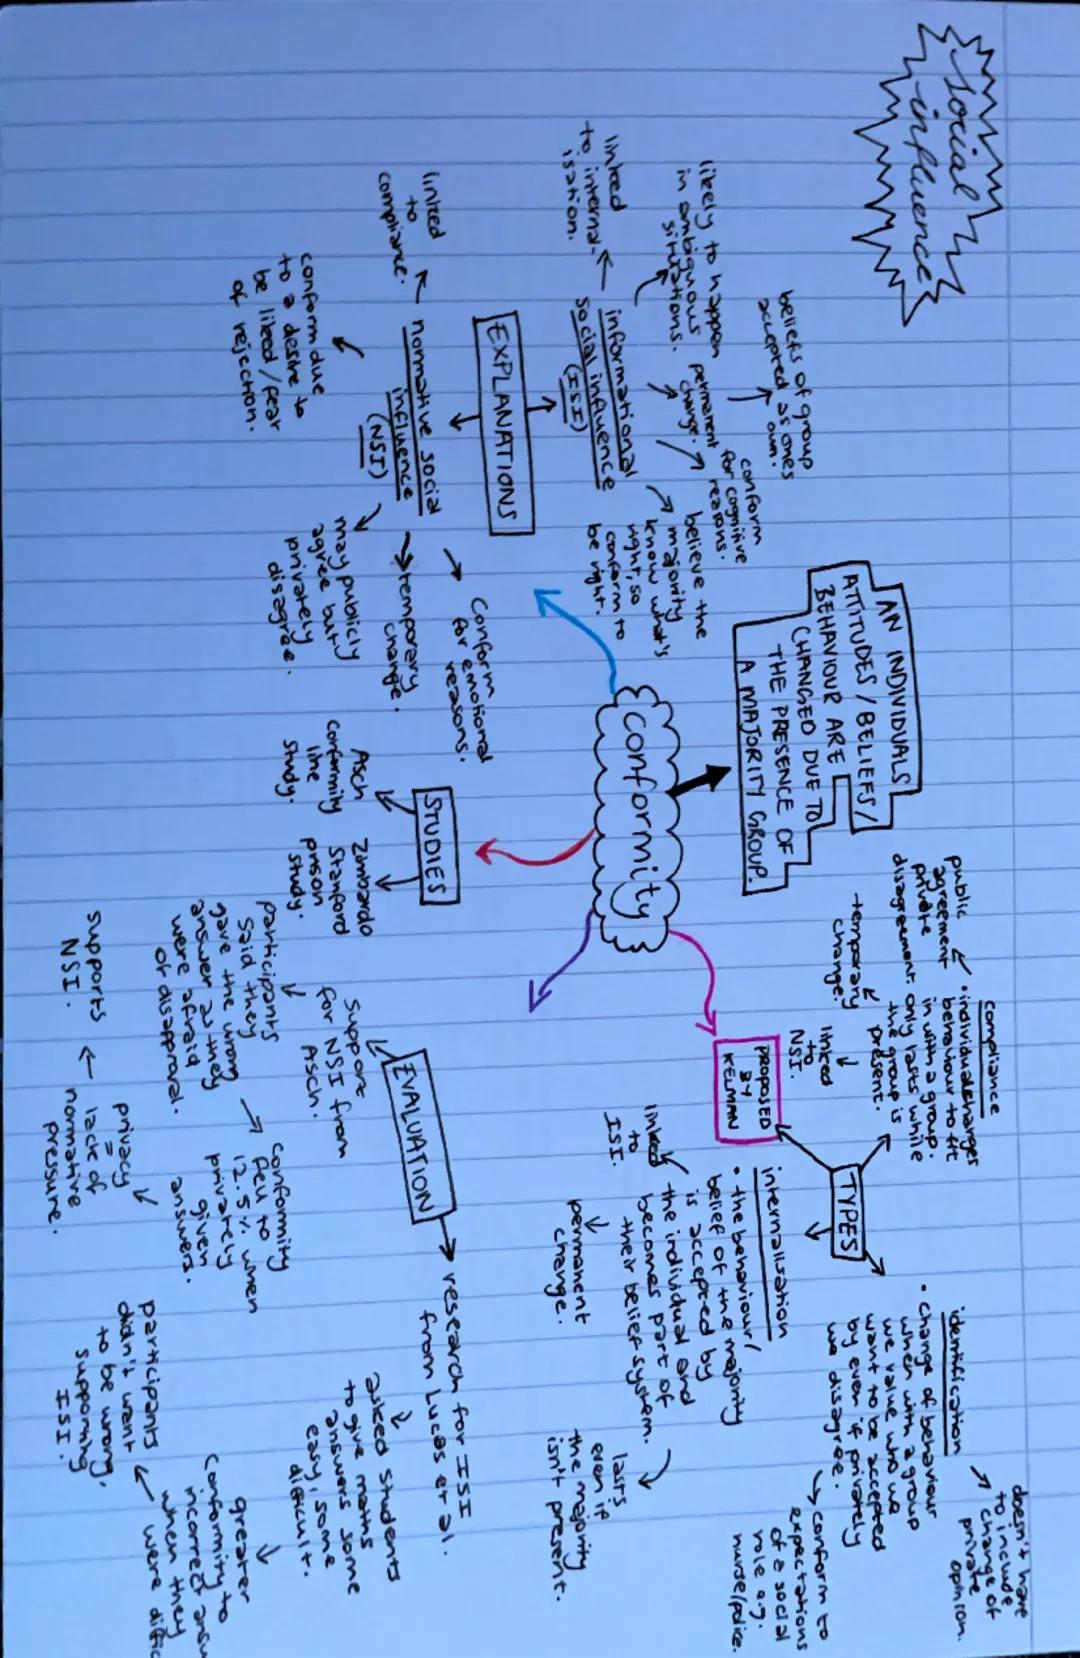 Social
influence
AN INDIVIDUALS
ATTITUDES/BELIEFS/
BEHAVIOUR ARE
CHANGED DUE TO
THE PRESENCE OF
A MAJORITY GROUP.
Conformity
EXPLANATIONS
informational
social influence
(ISI)
linked
to internal-
isation.
likely to happen
in ambiguous
situations.
permanent
change.
beliefs of group
accepted as ones
own.
conform
for cognitive
reasons.
believe the
majority
know what's
right, so
conform to
be right.
normative social
influence
(NSI)
linked
to
compliance.
conform due
to a desire to
be liked/fear
of rejection.
may publicly
agree but
privately
disagree.
temporary
change.
Conform
for emotional
reasons.
STUDIES
Asch
conformity
line
study.
Zimbardo
Stanford
prison
study.
TYPES
PROPOSED
BY
KELMAN
compliance
• individual changes
behaviour to fit
in with a group.
only lasts while
the group is
present.
public
agreement
private
disagreement.
temporary
change.
linked
to
NSI.
internalisation
• the behaviour/
belief of the majority
is accepted by
the individual and
becomes part of
their belief system.
linked
to
ISI.
permanent
change.
lasts
even if
the majority
isn't present.
identification
• change of behaviour
when with a group
we value who we
want to be accepted
by even if privately
we disagree.
doesn't have
to include
change of
private
opinion.
conform to
expectations
of a social
role e.g.
nurse/police.
EVALUATION
support
for NSI from
Asch.
participants
said they
gave the wrong
answer as they
were afraid
of disapproval.
Conformity
fell to
12.5% when
privately
given
answers.
privacy
=
lack of
normative
pressure.
supports
NSI.
research for ISI
from Lucas et al.
asked students
to give maths
answers some
easy, some
difficult.
greater
conformity to
incorrect answ
when they
were diffic
participants
didn't want
to be wrong,
supporting
ISI.